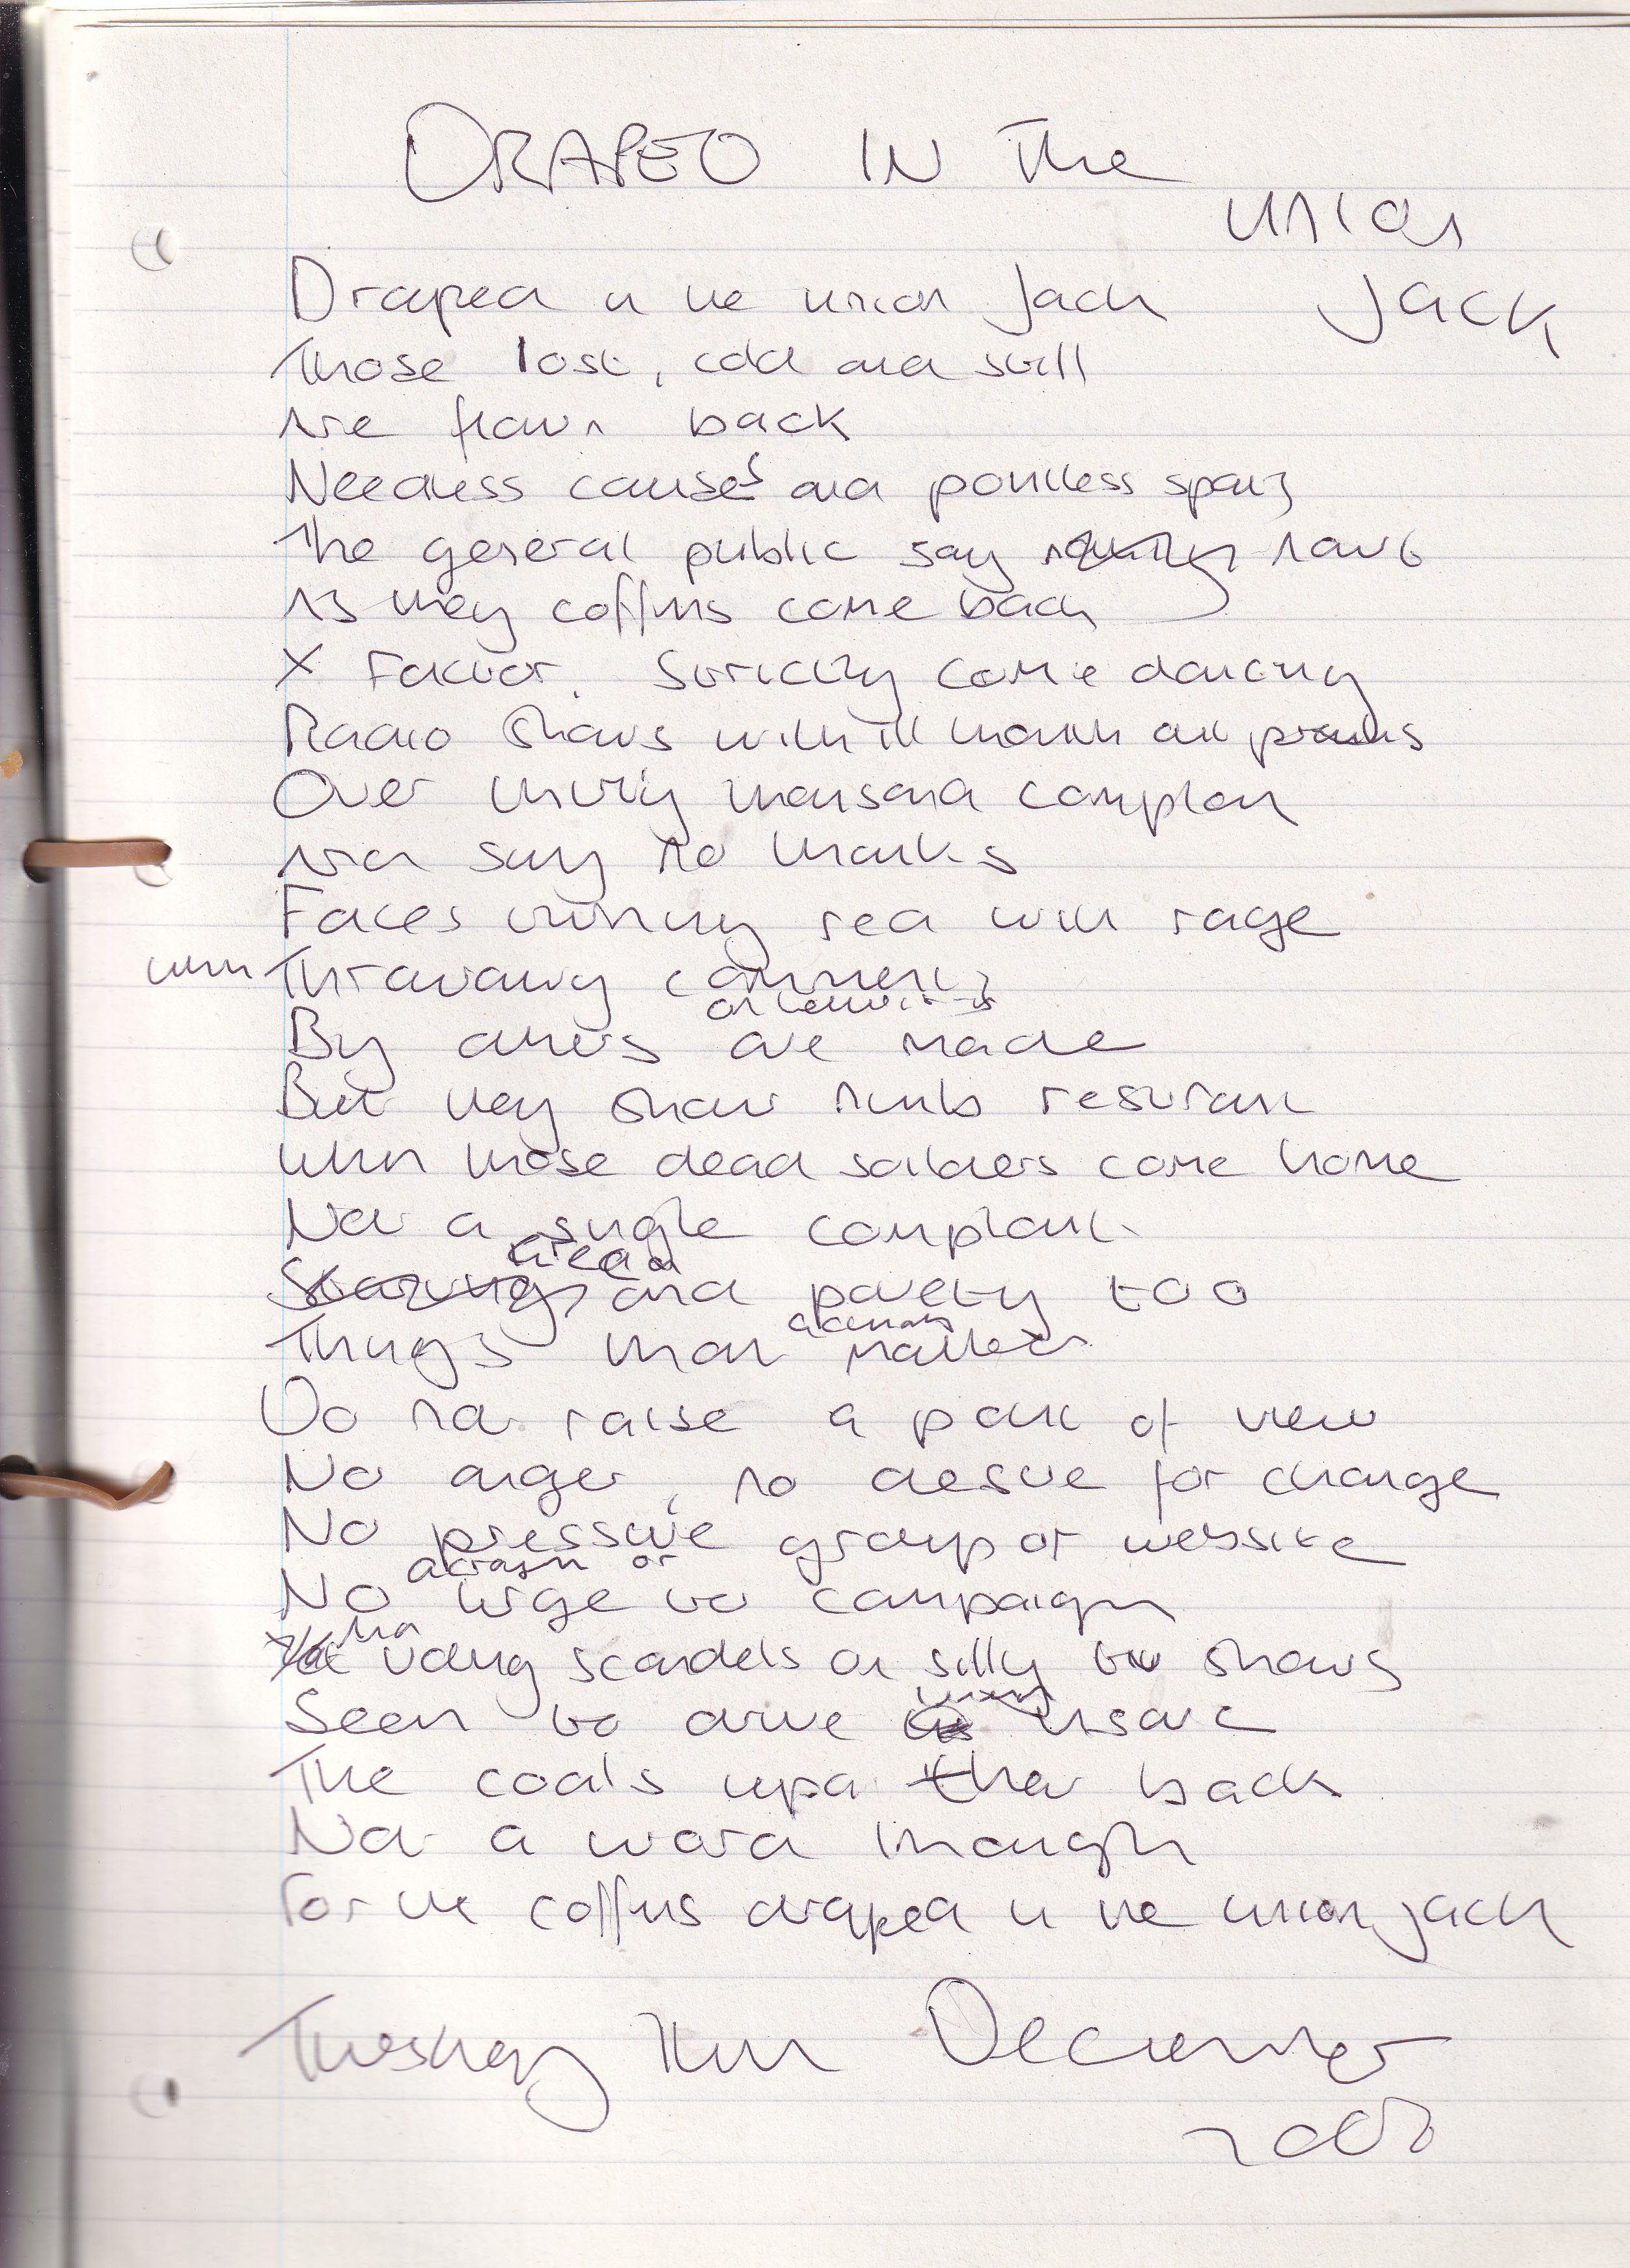 DRAPED IN The
union
Jack
Draped in the union Jack
Those lost, cold and still
Are flown back
Needless causes and pointless spats
The general public say nowt
As they coffins come back
X Factor. Strictly come dancing
Radio shows with ill pranks
Over thirty thousand complain
And say no thanks
Faces turning red with rage
when Throwaway comments
on tv
By others are made
But they show numb restraint
When those dead soilders come home
Not a single complaint
Greed
and poverty too
actually
Things that matter
Do not raise a point of view
No anger, no desire for change
No pressure group or website
action or
No urge to campaign
Voting scandels on silly tv shows
Seem to drive insane
The coals upon their back
Not a word though
For the coffins draped in the union jack
Tuesday 2nd December
2008